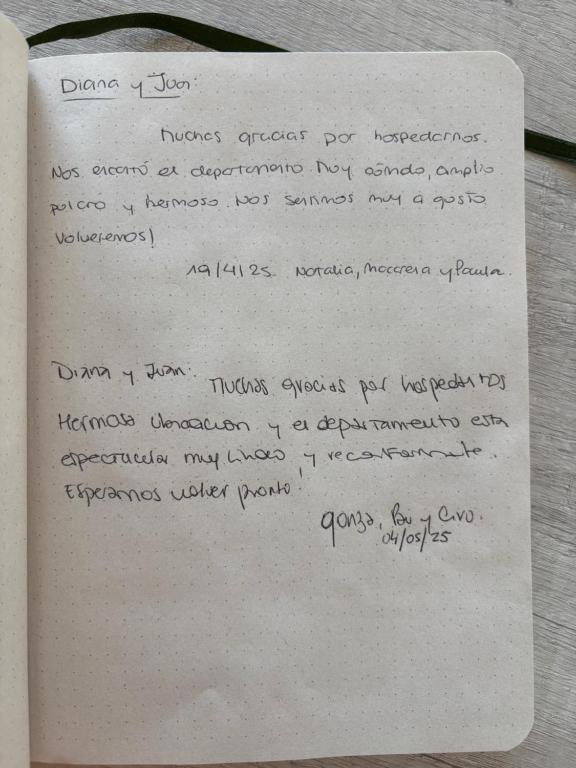 Diana y Juan:
Muchas gracias por hospedarnos.
Nos encantó el departamento. Muy cómodo, amplio
pulcro y hermoso. Nos sentimos muy a gusto
Volveremos!
19/4/25. Natalia, Macarena y Paula.
Diana y Juan:
Muchas gracias por hospedarnos
Hermosa ubicación y el departamento esta
espectacular muy lindo y reconfortante.
Esperamos volver pronto!
Gonza, y Ciro.
04/05/25